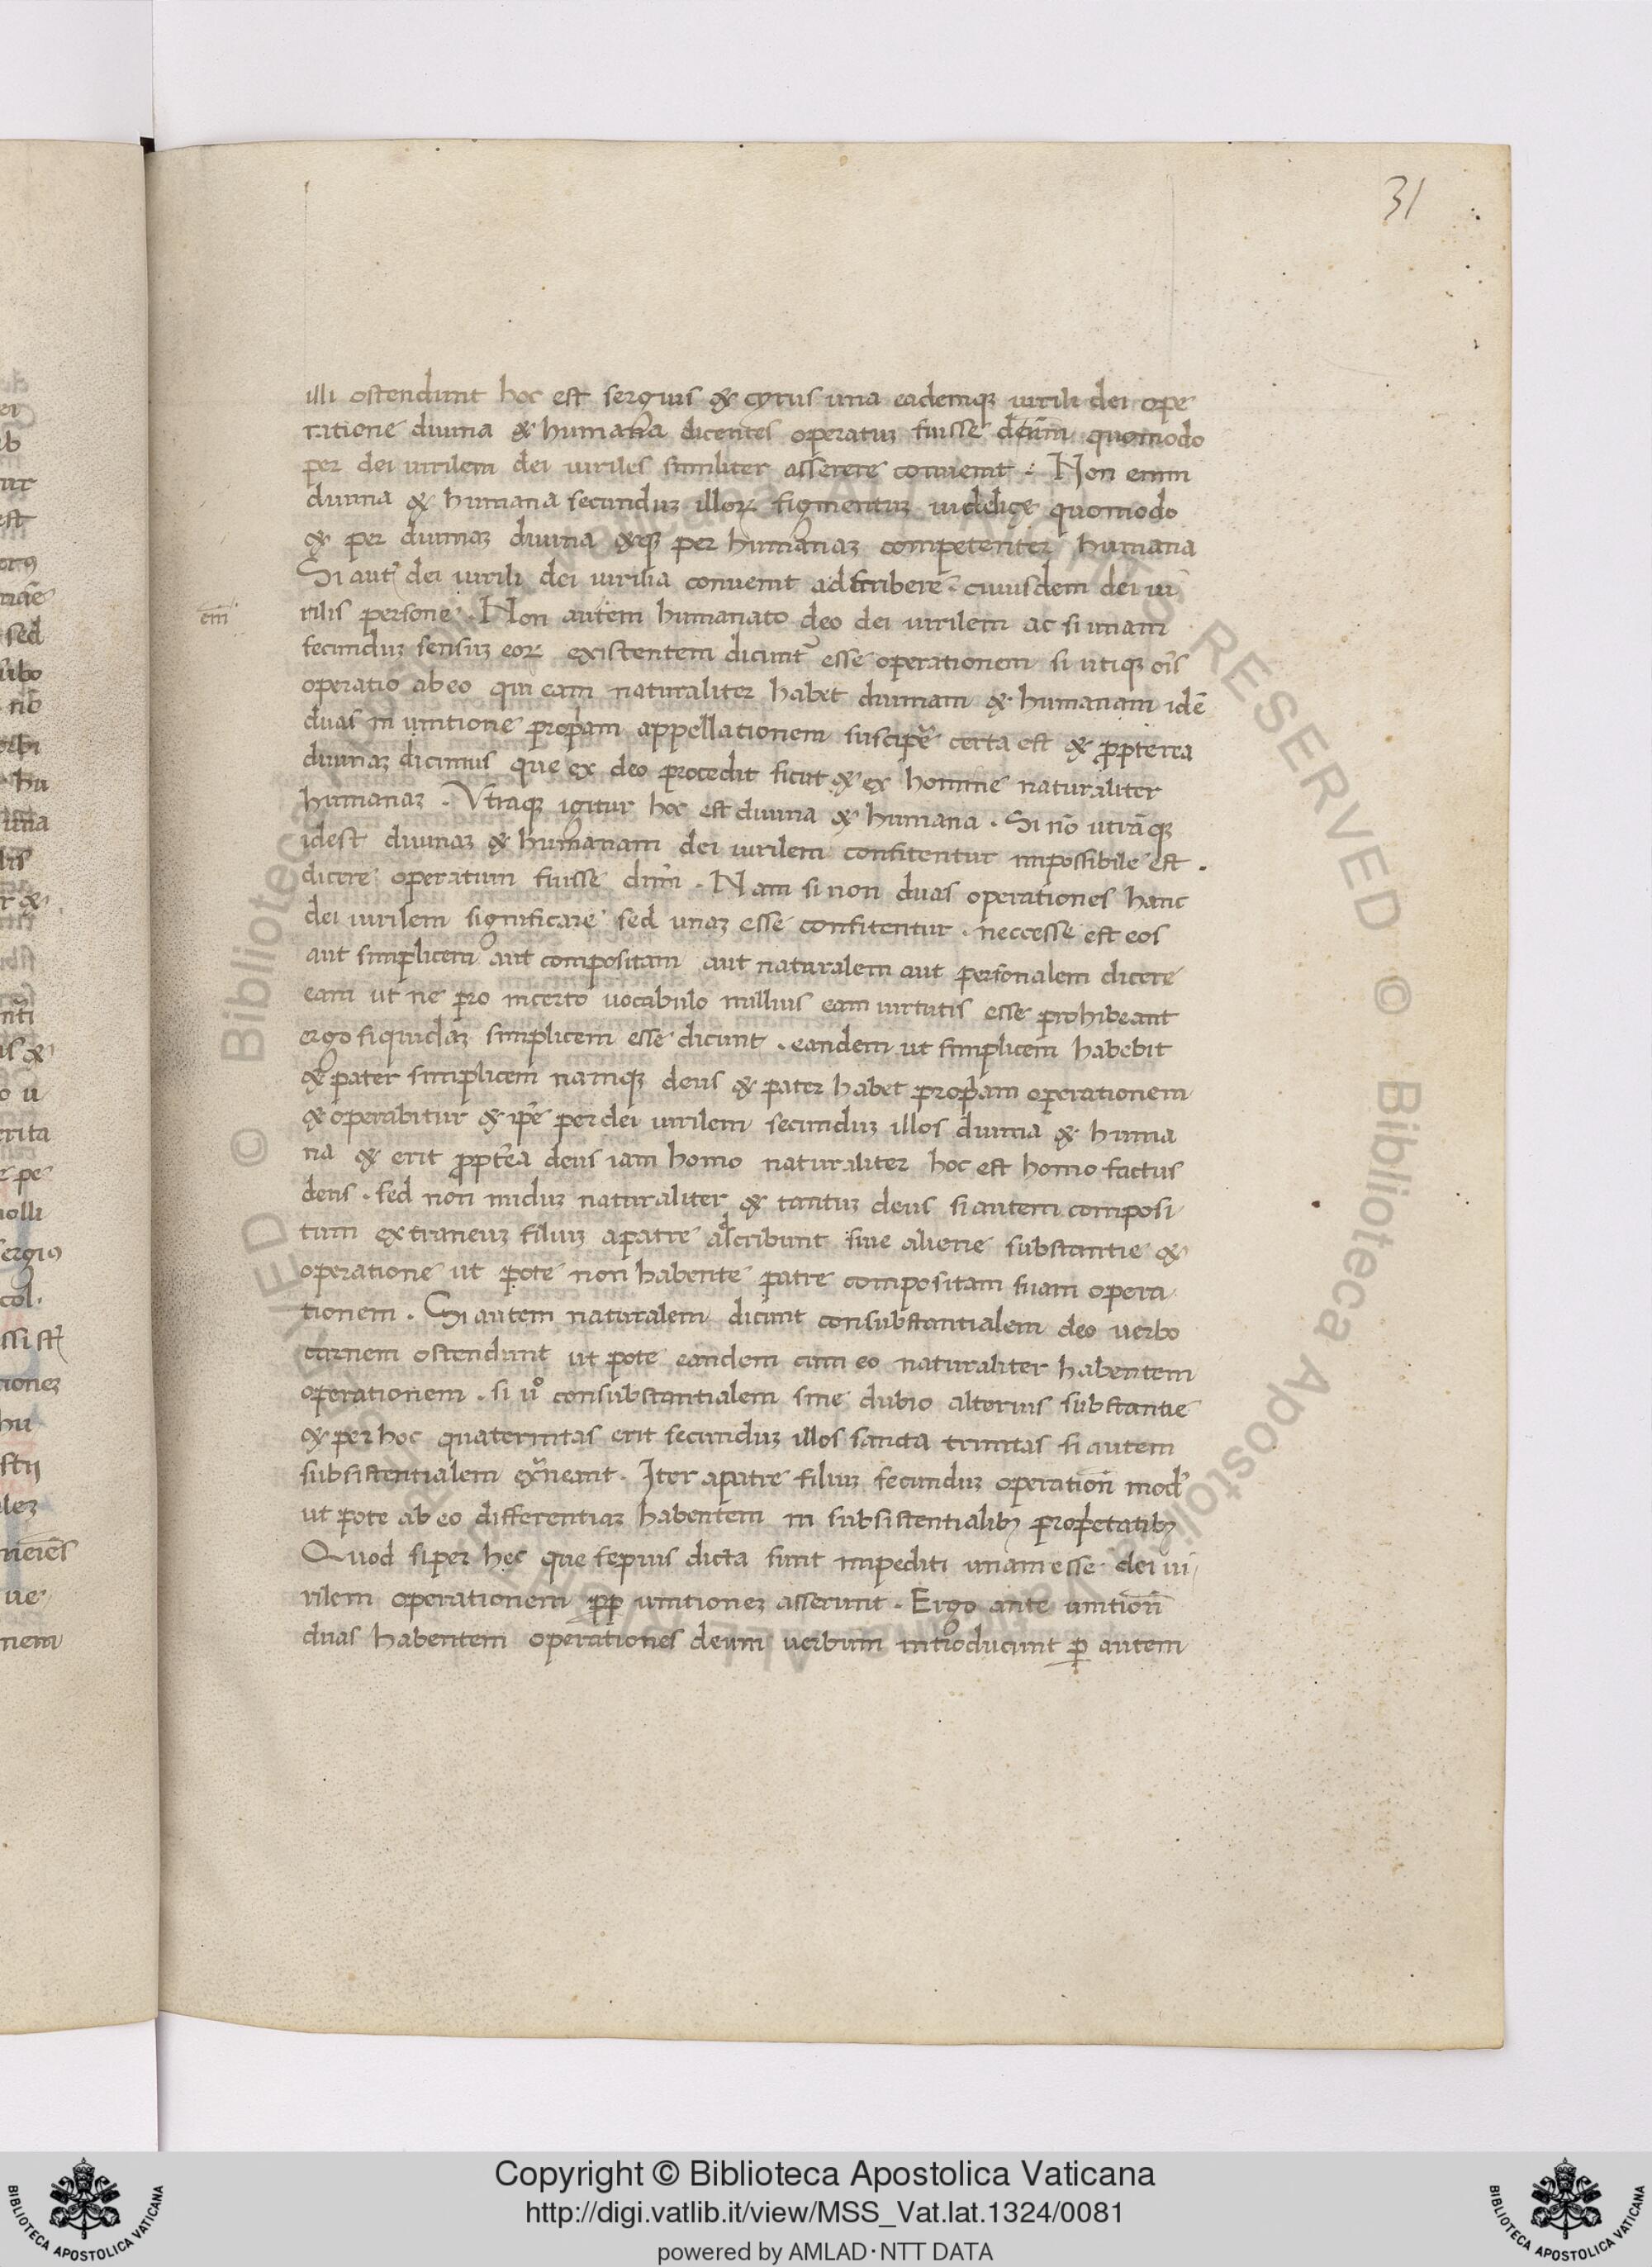 31
illi ostendunt hoc est sergius & cyrus una eademqꝫ uirili dei ope
ratione diuina & humana dicentes operatuꝫ fuisse dn̄m quomodo
per dei uirilem dei uiriles similiter asserere conuenit : Non enim
diuina & humana secunduꝫ illoꝝ figmentuꝫ uidelicꝫ quomodo
& per diuinaꝫ diuina & per humanaꝫ competenter humana
Si aut̄ dei uirili dei uirilia conuenit adscribere . eiuusdem dei ui
em̄
rilis persone . Non autem humanato deo dei uirilem ac si unam
secunduꝫ sensuꝫ eoꝝ existentem dicunt esse operationem si utiqꝫ oīs
operatio ab eo qui eam naturaliter habet diuinam & humanam idē
duas in unitione propriam appellationem suscipe certa est & propterea
diuinaꝫ dicimus que ex deo procedit sicut & ex homine naturaliter
humanaꝫ . Vtraqꝫ igitur hoc est diuina & humana . Si nō utrāqꝫ
idest diuinaꝫ & humanam dei uirilem confitentur impossibile est .
dicere operatum fuisse dn̄m . Nam si non duas operationes hanc
dei uirilem significare sed unaꝫ esse confitentur . neccesse est eos
aut simplicem aut compositam aut naturalem aut personalem dicere
eam ut ne pro incerto uocabulo nullius eam uirtutis esse prohibeant
ergo si quidaꝫ simplicem esse dicunt . eandem ut simplicem habebit
& pater simplicem namqꝫ deus & pater habet propriam operationem
& operabitur & ip̄e per dei uirilem secunduꝫ illos diuina & huma
na & erit propterea deus iam homo naturaliter hoc est homo factus
deus . sed non nuduꝫ naturaliter & tantuꝫ deus si autem composi
tum extraneuꝫ filiuꝫ apatre adscribunt siue aliene substantie &
operatione ut pote non habente patre compositam suam opera
tionem . Si autem naturalem dicunt consubstantialem deo uerbo
carnem ostendunt ut pote eandem cum eo naturaliter habentem
operationem . si ůo consubstantialem sine dubio alterius substantie
& per hoc quaternitas erit secunduꝫ illos sancta trinitas si autem
subsistentialem Iter apatre filiuꝫ secunduꝫ operation̄ mod̄
ut pote ab eo differentiaꝫ habentem in subsistentialibꝫ proprietatibꝫ
Quod si per hec que sepius dicta sunt impediti unam esse dei ui
rilem operationem p̄p unitioneꝫ asserunt . Ergo ante unition̄
duas habentem operationes deum uerbum introducunt ꝑ autem
Copyright © Biblioteca Apostolica Vaticana
http://digi.vatlib.it/view/MSS_Vat.lat.1324/0081
powered by AMLAD·NTT DATA
BIBLIOTECA APOSTOLICA VATICANA
BIBLIOTECA APOSTOLICA VATICANA